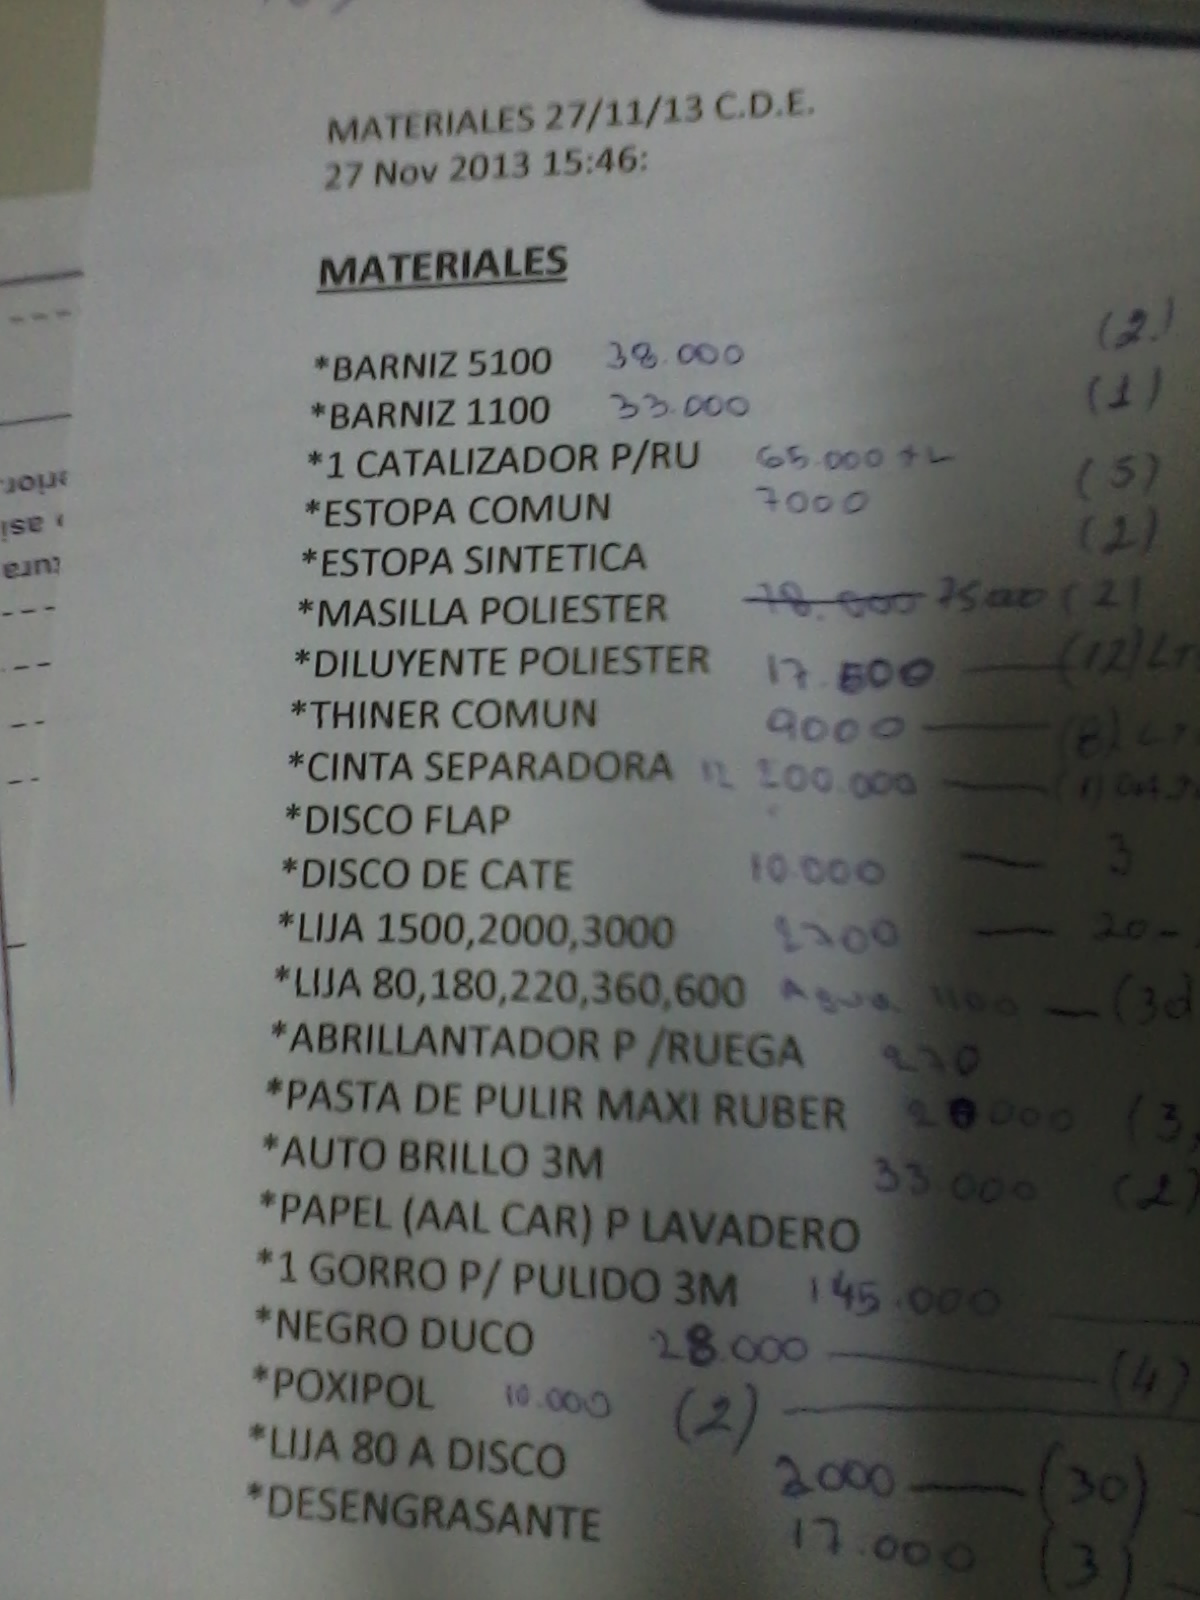 MATERIALES 27/11/13 C.D.E.
27 Nov 2013 15:46:
MATERIALES
*BARNIZ 5100 38.000 (2)
*BARNIZ 1100 33.000 (1)
*1 CATALIZADOR P/RU 65.000 (5)
*ESTOPA COMUN 7000 (2)
*ESTOPA SINTETICA
*MASILLA POLIESTER 78.000 75000 (2)
*DILUYENTE POLIESTER 17.500 — (12) LT
*THINER COMUN 9000 — (8) LT
*CINTA SEPARADORA 12 200.000 — (1)
*DISCO FLAP
*DISCO DE CATE 10.000 — 3
*LIJA 1500,2000,3000 2200 — 20 -
*LIJA 80,180,220,360,600 Agua 1100 — (30
*ABRILLANTADOR P /RUEGA
*PASTA DE PULIR MAXI RUBER (3
*AUTO BRILLO 3M 33.000 (2)
*PAPEL (AAL CAR) P LAVADERO
*1 GORRO P/ PULIDO 3M 145.000
*NEGRO DUCO 28.000 — (4)
*POXIPOL 10.000 (2) —
*LIJA 80 A DISCO 2000 — (30)
*DESENGRASANTE 17.000 (3)